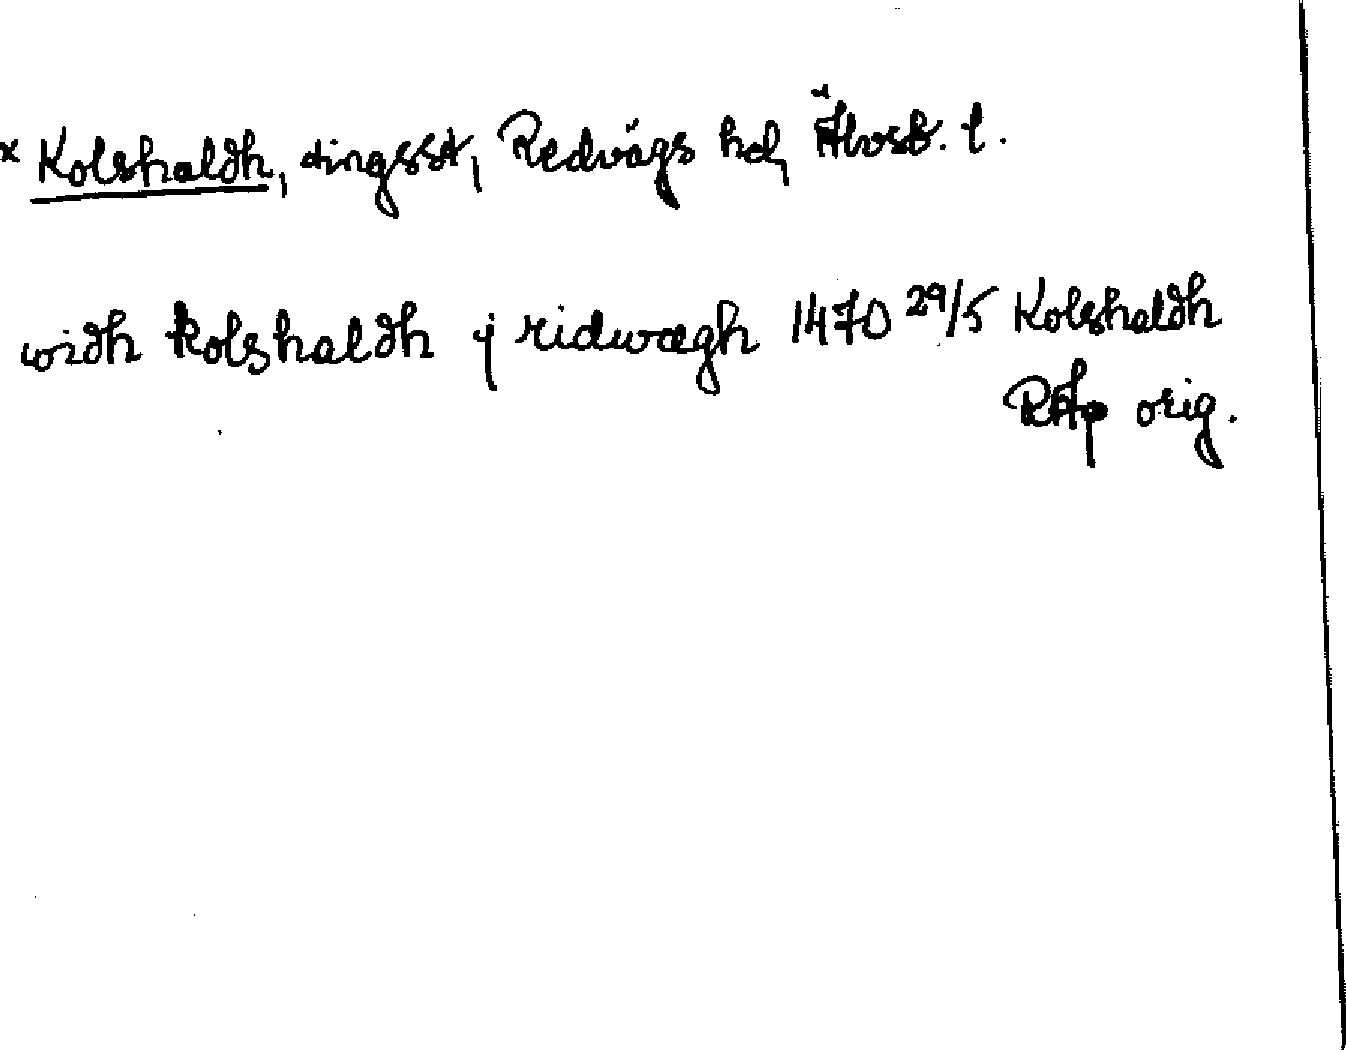 × Kolshaldh, tingsst, Redvägs hd, Älvsb. l.
widh kolshaldh j ridwægh 1470 29/5 Kolshaldh
RAp orig.